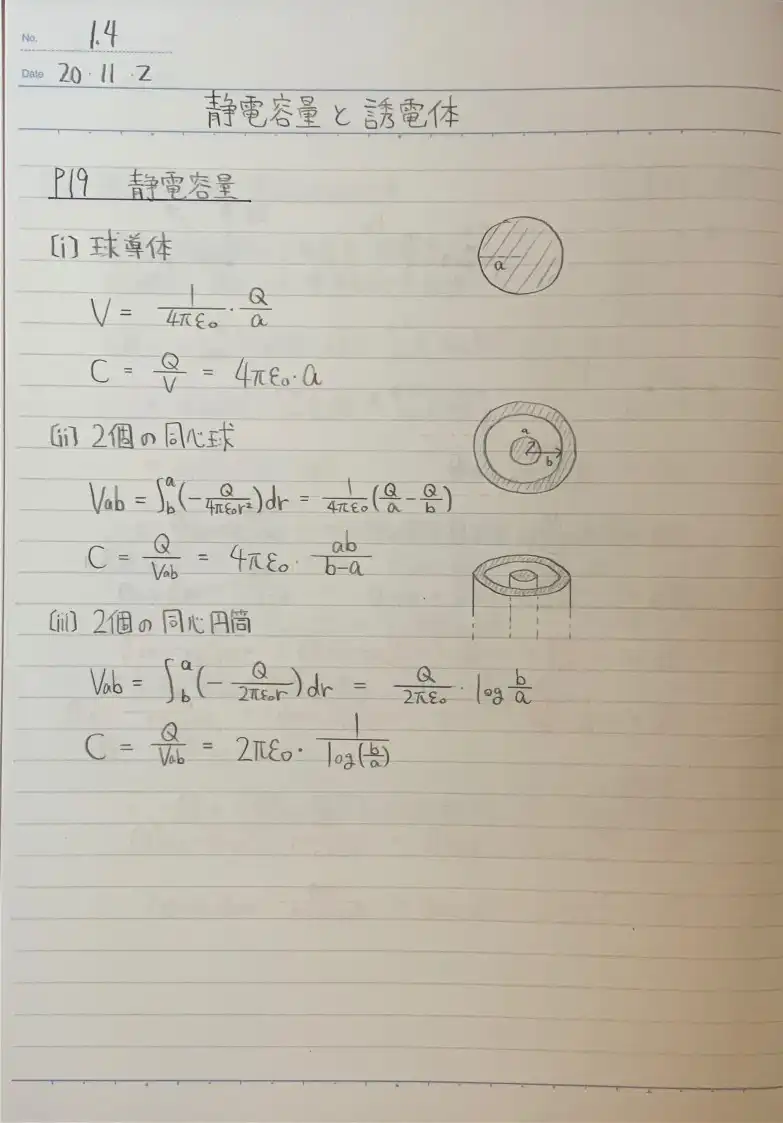 No. 1.4
Date 20・11・2
静電容量と誘電体
P19 静電容量
[i] 球導体
a
V = 1/4πε₀・Q/a
C = Q/V = 4πε₀・a
[ii] 2個の同心球
a
b
Vab = ∫_b^a(-Q/4πε₀r²)dr = 1/4πε₀(Q/a - Q/b)
C = Q/Vab = 4πε₀・ab/b-a
[iii] 2個の同心円筒
Vab = ∫_b^a(-Q/2πε₀r)dr = Q/2πε₀・log b/a
C = Q/Vab = 2πε₀・1/log(b/a)